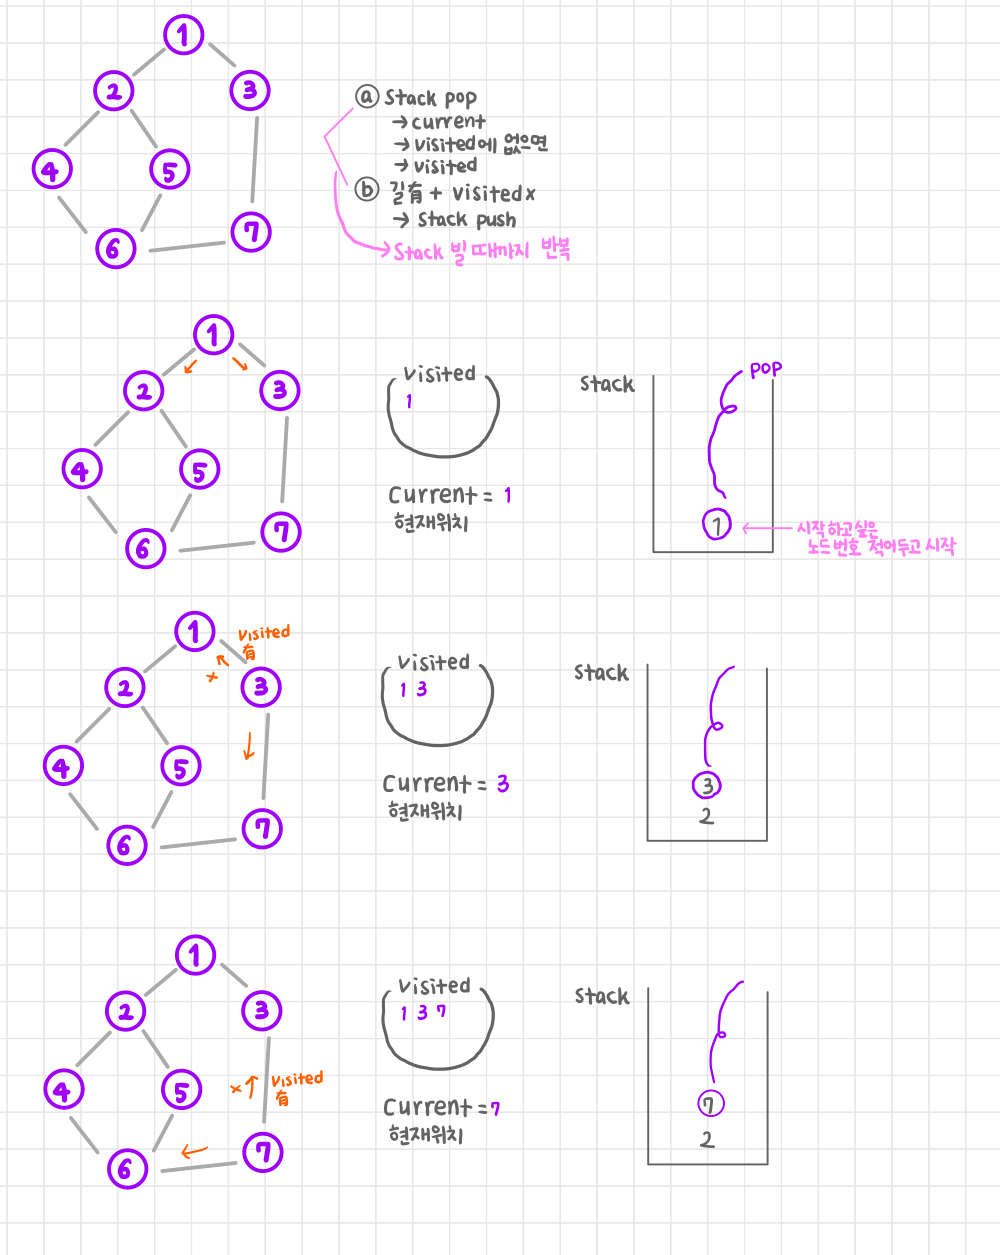 1
2
3
4
5
6
7
ⓐ Stack pop
→ current
→ visited에 없으면
→ visited
ⓑ 길有 + visited x
→ stack push
→ Stack 빌 때까지 반복
1
2
3
4
5
6
7
visited
1
Current = 1
현재위치
Stack
pop
1
← 시작하고싶은
노드번호 적어두고 시작
1
visited
有
x
2
3
4
5
6
7
visited
1 3
Current = 3
현재위치
Stack
3
2
1
2
3
4
5
x
visited
有
6
7
visited
1 3 7
Current = 7
현재위치
Stack
7
2